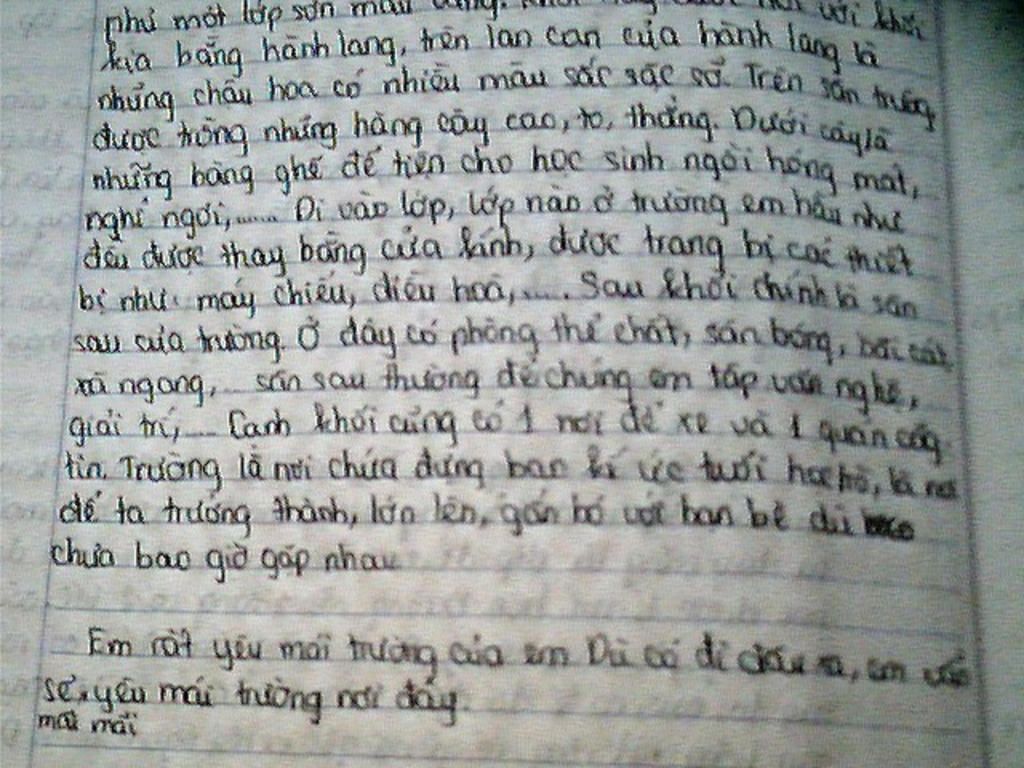 như một lớp sơn màu vàng. khối này với khối
kia bằng hành lang, trên lan can của hành lang là
những chậu hoa có nhiều màu sắc sặc sỡ. Trên sân trường
được trồng những hàng cây cao, to, thẳng. Dưới cây là
những bằng ghế để tiện cho học sinh ngồi hóng mát,
nghỉ ngơi,...... Đi vào lớp, lớp nào ở trường em hầu như
đều được thay bằng cửa kính, được trang bị các thiết
bị như: máy chiếu, điều hoà,..... Sau khối chính là sân
sau của trường. Ở đây có phòng thể chất, sân bóng, bãi cát,
xà ngang,... sân sau thường để chúng em tập văn nghệ,
giải trí,.... Cạnh khối cũng có 1 nơi để xe và 1 quán căng
tin. Trường là nơi chứa đựng bao kí ức tuổi học trò, là nơi
để ta trưởng thành, lớn lên, gắn bó với bạn bè dù
chưa bao giờ gặp nhau
Em rất yêu mái trường của em Dù có đi đâu xa, em vẫn
sẽ yêu mái trường nơi đây.
mãi mãi